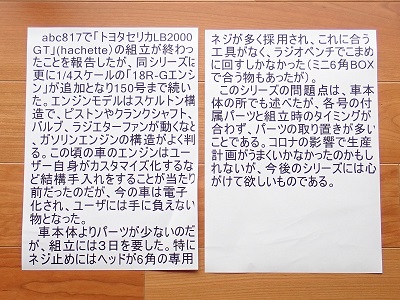 abc817で「トヨタセリカLB2000
GT」(hachette)の組立が終わっ
たことを報告したが、同シリーズに
更に1/4スケールの「18R-Gエンジ
ン」が追加となり150号まで続い
た。エンジンモデルはスケルトン構
造で、ピストンやクランクシャフト、
バルブ、ラジエターファンが動くなど、
ガソリンエンジンの構造がよく判
る。この頃の車のエンジンはユー
ザー自身がカスタマイズ化するな
ど結構手入れをすることが当たり
前だったのだが、今の車は電子
化され、ユーザには手に負えない
物となった。
車本体よりパーツが少ないのだ
が、組立には3日を要した。特に
ネジ止めにはヘッドが6角の専用
ネジが多く採用され、これに合う
工具がなく、ラジオペンチでこまめ
に回すしかなかった(ミニ6角BOX
で合う物もあったが)。
このシリーズの問題点は、車本
体の所でも述べたが、各号の付
属パーツと組立時のタイミングが
合わず、パーツの取り置きが多い
ことである。コロナの影響で生産
計画がうまくいかなかったのかもし
れないが、今後のシリーズには心
がけて欲しいものである。